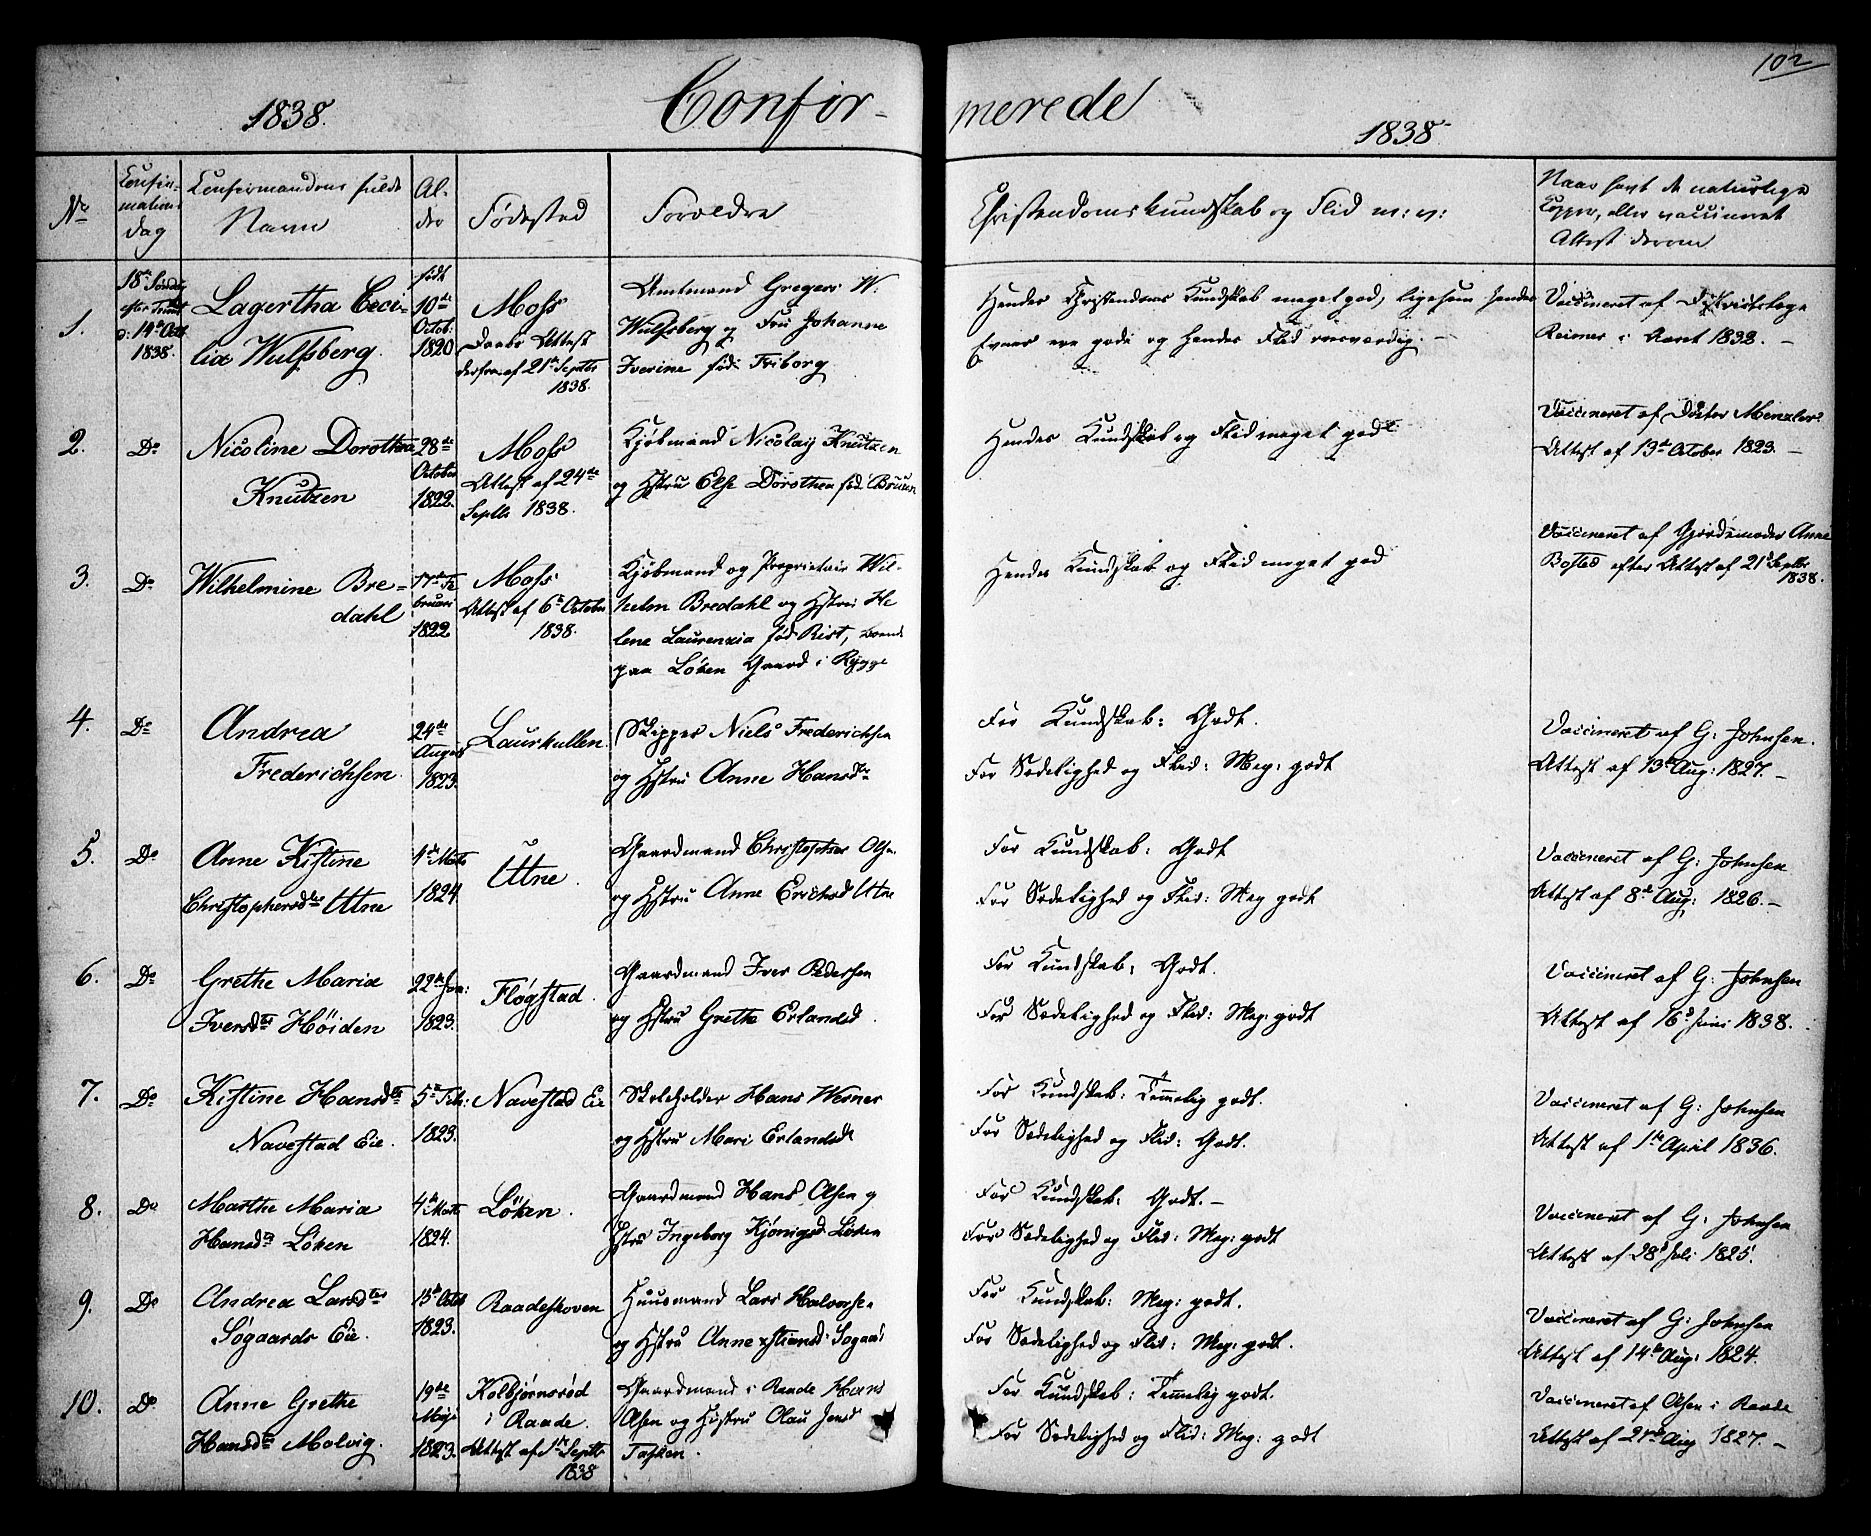 102
1838. Confir- merede 1838
No
Confir-
mations
dag
Confirmandens fulde
Navn
Al-
der
Fødested
Forældre
Christendomskundskab og Flid m: v:
Naar havt de naturlige
Kopper, eller vaccineret
Attest derom
1.
18de Søndag
efter Trinit
d: 14de Octb
1838.
Lagertha Ceci-
lia Wulfsberg.
født
10de
Octob:
1820
Moss
Daabs Attest
derfra af 21de Septbr
1838.
Amtmand Gregers W.
Wulfsberg og Frue Johanne
Iverine fød: Friborg
Hendes Christendoms Kundskab meget god, ligesom hendes
Evner ere gode og hendes Flid roesværdig. –
Vaccineret af Districtslæge
Reimer i Aaret 1832. –
2.
Do
Nicoline Dorothea
Knutzen
28de
October
1822.
Moss
Attest af 24de
Septb: 1838.
Kjøbmand Nicolay Knutzen
og Hstru Else Dorothea fød: Bruun
Hendes Kundskab og Flid meget god
Vaccineret af Doctor Menzler
Attest af 13de October 1823. –
3.
Do
Wilhelmine Bre-
dahl
17de Fe
bruari
1822
Moss
Attest af 6te October
1838.
Kjøbmand og Proprietair Wil-
helm Bredahl og Hstru He
lene Laurenzia fød Rist, boende
paa Löken Gaard i Rygge
Hendes Kundskab og Flid meget god
Vaccineret af Gjordemoder Anne
Bosted efter Attest af 21de Septbr
1838.
4.
Do
Andrea
Frederichsen.
24de
August
1823.
Laurkullen.
Skipper Niels Frederichsen
og Hstru Anne Hansdtr
For Kundskab: Godt.
For Sædelighed og Flid: Meg: godt
Vaccineret af G: Johnsen.
Attest af 13de Aug: 1827. –
5.
Do
Anne Kistine
Christophersdter Utne
4de Marts
1824
Utne.
Gaardmand Christopher Olsen
og Hstru Anne Erichsd Utne
For Kundskab: Godt
For Sædelighed og Flid: Meg godt
Vaccineret af G: Johnsen
Attest af 8de Aug: 1826. –
6.
Do
Grethe Maria
Iversdtr Höiden
22de Jan:
1823.
Fløgstad.
Gaardmand Iver Pedersen
og Hstru Grethe Erlandsd.
For Kundskab: Godt.
For Sædelighed og Flid: Meg: godt
Vaccineret af G: Johnsen
Attest af 16de Juni 1838.
7.
Do
Kistine Hansdtr
Navestad Eie.
5te Feb:
1823.
Navestad Eie
Skoleholder Hans Werner
og Hstru Mari Erlandsdt
For Kundskab: Temelig godt.
For Sædelighed og Flid: Godt.
Vaccineret af G: Johnsen
Attest af 1ste April 1836.
8.
Do
Marthe Maria
Hansdtr Löken
4de Marts
1824.
Löken.
Gaardmand Hans Olsen og
Hstru Ingeborg Kjönigsd Löken
For Kundskab: Godt. –
For Sædelighed og Flid: Meg: godt
Vaccineret af G: Johnsen
Attest af 28de Juli 1825.
9.
Do
Andrea Larsdter
Søgaards Eie.
15de Octob
1823.
Raadeskoven
Huusmand Lars Halvorse-
og Hstru Anne Xstiansd: Søgaard
For Kundskab: Meg: godt.
For Sædelighed og Flid: Meg: godt.
Vaccineret af G: Johnsen
Attest af 14de Aug: 1824.
10.
Do
Anne Grethe
Hansdtr Molvig.
19de
Maji
1823.
Kolbjørnsrød
i Raade.
Attest af 1ste Septbr
1838
Gaardmand i Raade Hans
Olsen og Hustru Olau Jensd
Tasken.
For Kundskab: Temelig godt.
For Sædelighed og Flid: Meg: godt
Vaccineret af Olsen i Raade
Attest af 21de Aug 1827. –